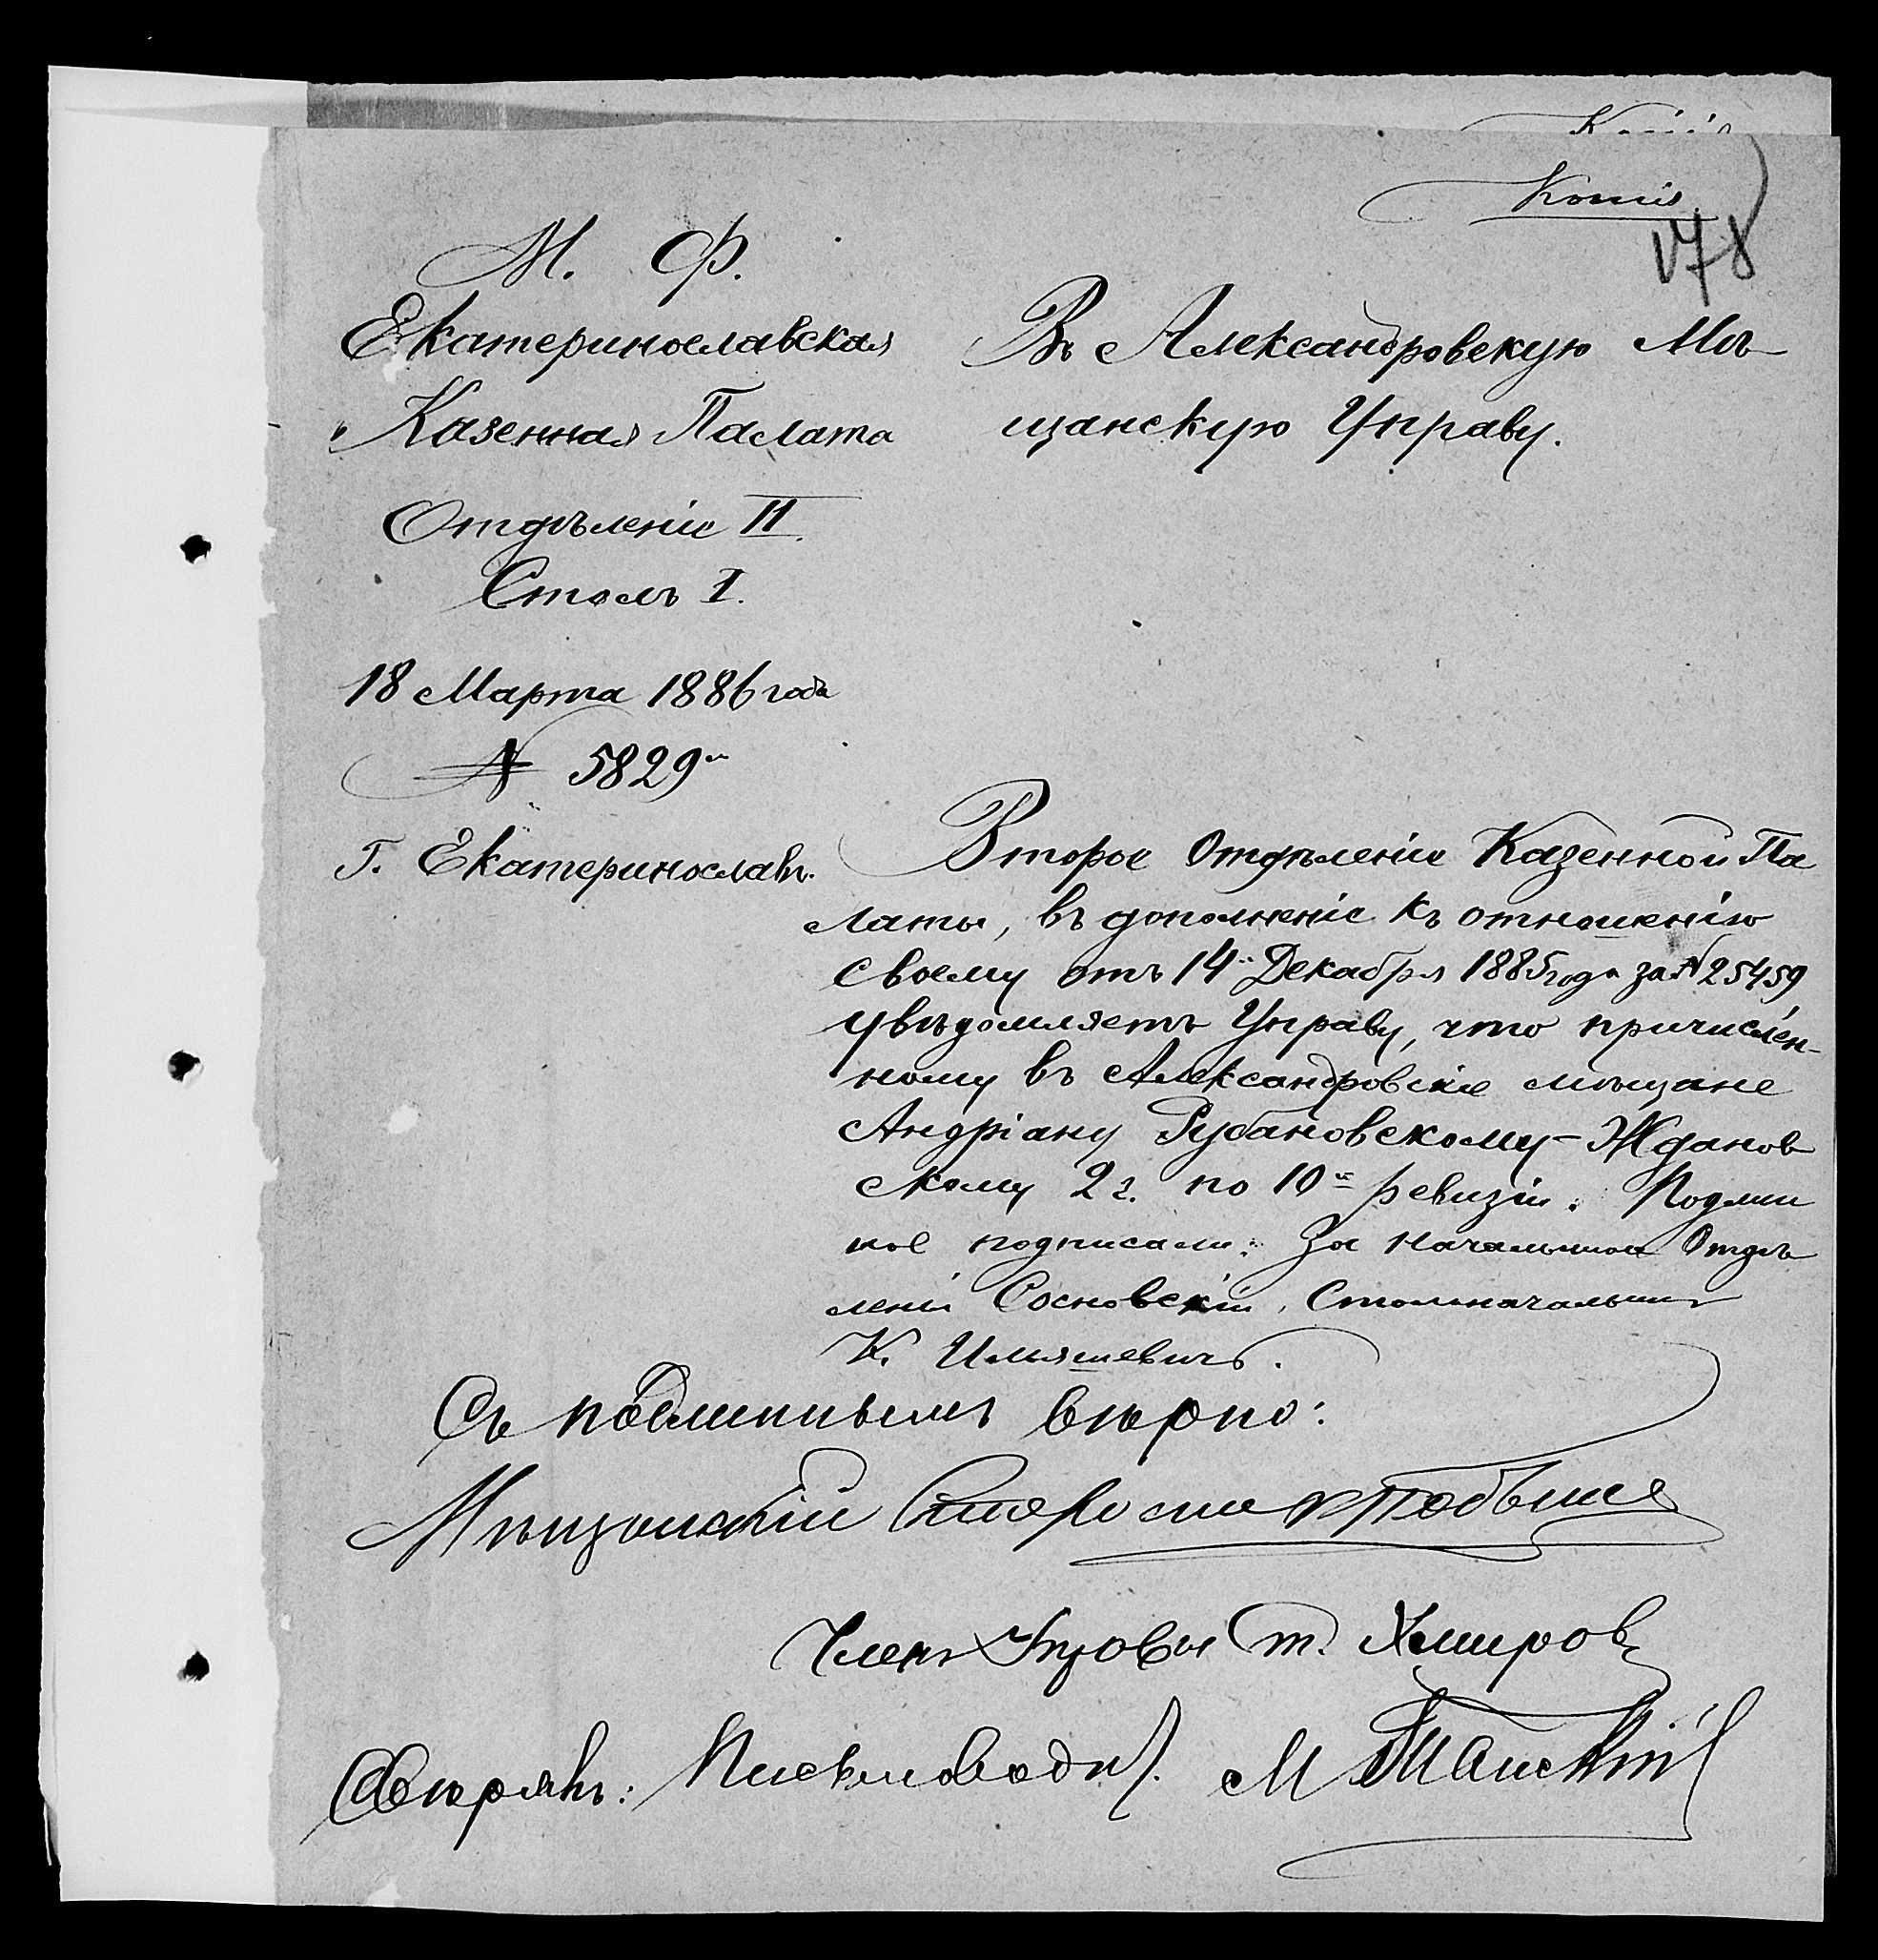 Копія
178
М. Ф.
Екатеринославская
Казенная Палата
Отдѣленіе II.
Столъ I.
18 Марта 1886 года
№ 5829
Г. Екатеринославъ.
Въ Александровскую Мѣ-
щанскую Управу.
Второе Отдѣленіе Казенной Па
латы, въ дополненіе къ отношенію
своему отъ 14 Декабря 1885 года за № 25459
увѣдомляетъ Управу, что причислен-
ному въ Александровскіе мѣщане
Андріану Рубановскому-Жданов
скому 2 г. по 10й ревизіи. Подлин
ное подписали: За Начальника Отдѣ
ленія Сосновскій, Столоначальникъ
К. Ильяшевичъ.
Съ подлиннымъ вѣрно:
Мѣщанскій Староста
Членъ Управы Т. Хмировъ
Свѣрялъ: Письмоводит. М